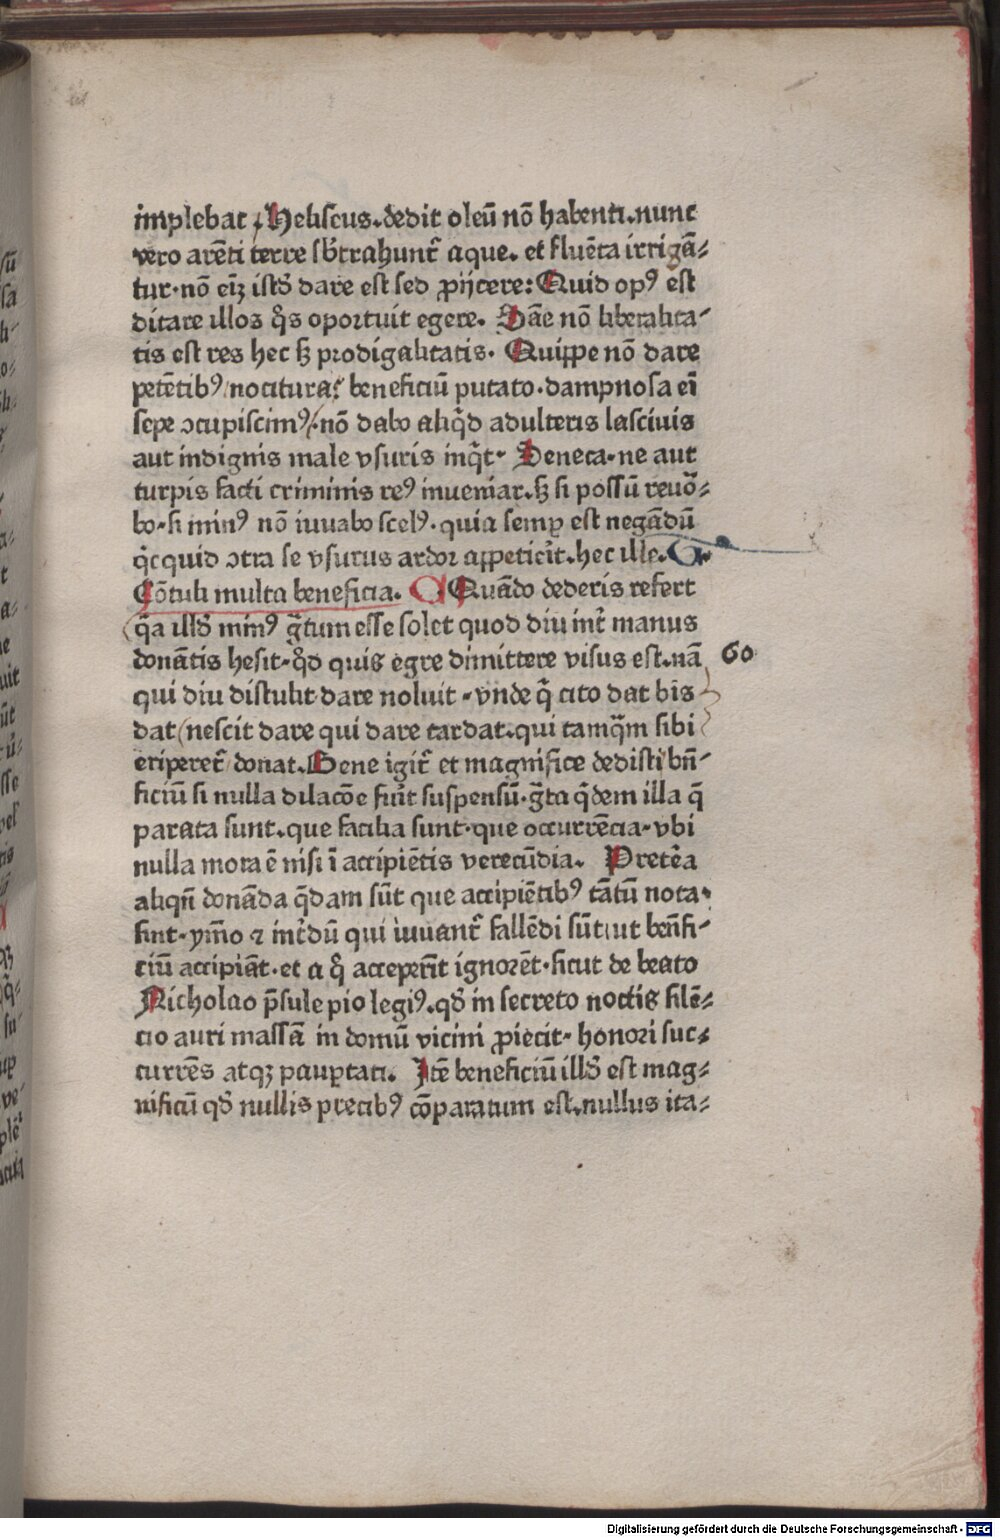 implebat. Heliseus. dedit oleū nō habenti. nunc
vero arēti terre sb̄trahunt᷑ aque. et fluēta irrigā⸗
tur. nō eīz istđ dare est sed ꝓijcere: Quid opꝰ est
ditare illos q̄s oportuit egere. Sāe nō liberalita⸗
tis est res hec sꝫ prodigalitatis. Quippe nō dare
petētibꝰ nocitura᷑ beneficiū putato. dampnosa eī
sepe ꝯcupiscimꝰ. nō dabo aliq̄d adulteris lascivis
aut indignis male vsuris inq̄t. Seneca. ne aut
turpis facti criminis reꝰ inveniar. sꝫ si possū revō⸗
bo. si minꝰ nō iuvabo scelꝰ. quia semꝑ est negādū
q̄cquid ꝯtra se vsurus ardor appetierit. hec ille.
Cōtuli multa beneficia. Quādo dederis refert
q̄a illđ minꝰ gᷓtum esse solet quod diu int᷑ manus
donātis hesit. qđ quis egre dimittere visus est. nā
60
qui diu distulit dare noluit. vnde q̄ cito dat bis
dat nescit dare qui dare tardat. qui tamqᷓm sibi
eriperet᷑ donat. Bene igit᷑ et magnifice dedisti bn̄⸗
ficiū si nulla dilacōe fiūt suspensū. gᷓta q̄dem illa q̄
parata sunt. que facilia sunt. que occurrēcia. vbi
nulla mora ē nisi ī accipiētis verecūdia. Pretēa
aliqn̄ donāda q̄dam sūt que accipiētibꝰ tātū nota
sint. ymmo ⁊ int᷑dū qui iuuant᷑ fallēdi sūt ut ben̄fi⸗
ciū accipiāt. et a q̄ acceperīt ignorēt. sicut de beato
Nicholao p̄sule pio legiꝰ. qđ in secreto noctis silē⸗
cio auri massā in domū vicini ꝓiecit. honori suc⸗
currēs atqꝫ pauꝑtati. Itē beneficiū illđ est mag⸗
nificū qđ nullis precibꝰ cōparatum est. nullus ita⸗
Digitalisierung gefördert durch die Deutsche Forschungsgemeinschaft - DFG